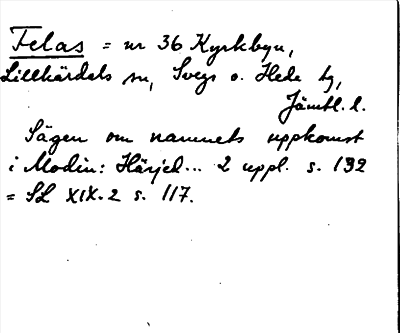 Felas = nr 36 Kyrkbyn,
Lillhärdals sn, Svegs o. Hede tg,
Jämtl. l.
Sägen om namnets uppkomst
i Modin: Härjed... 2 uppl. s. 192
= SL XIX.2 s. 117.